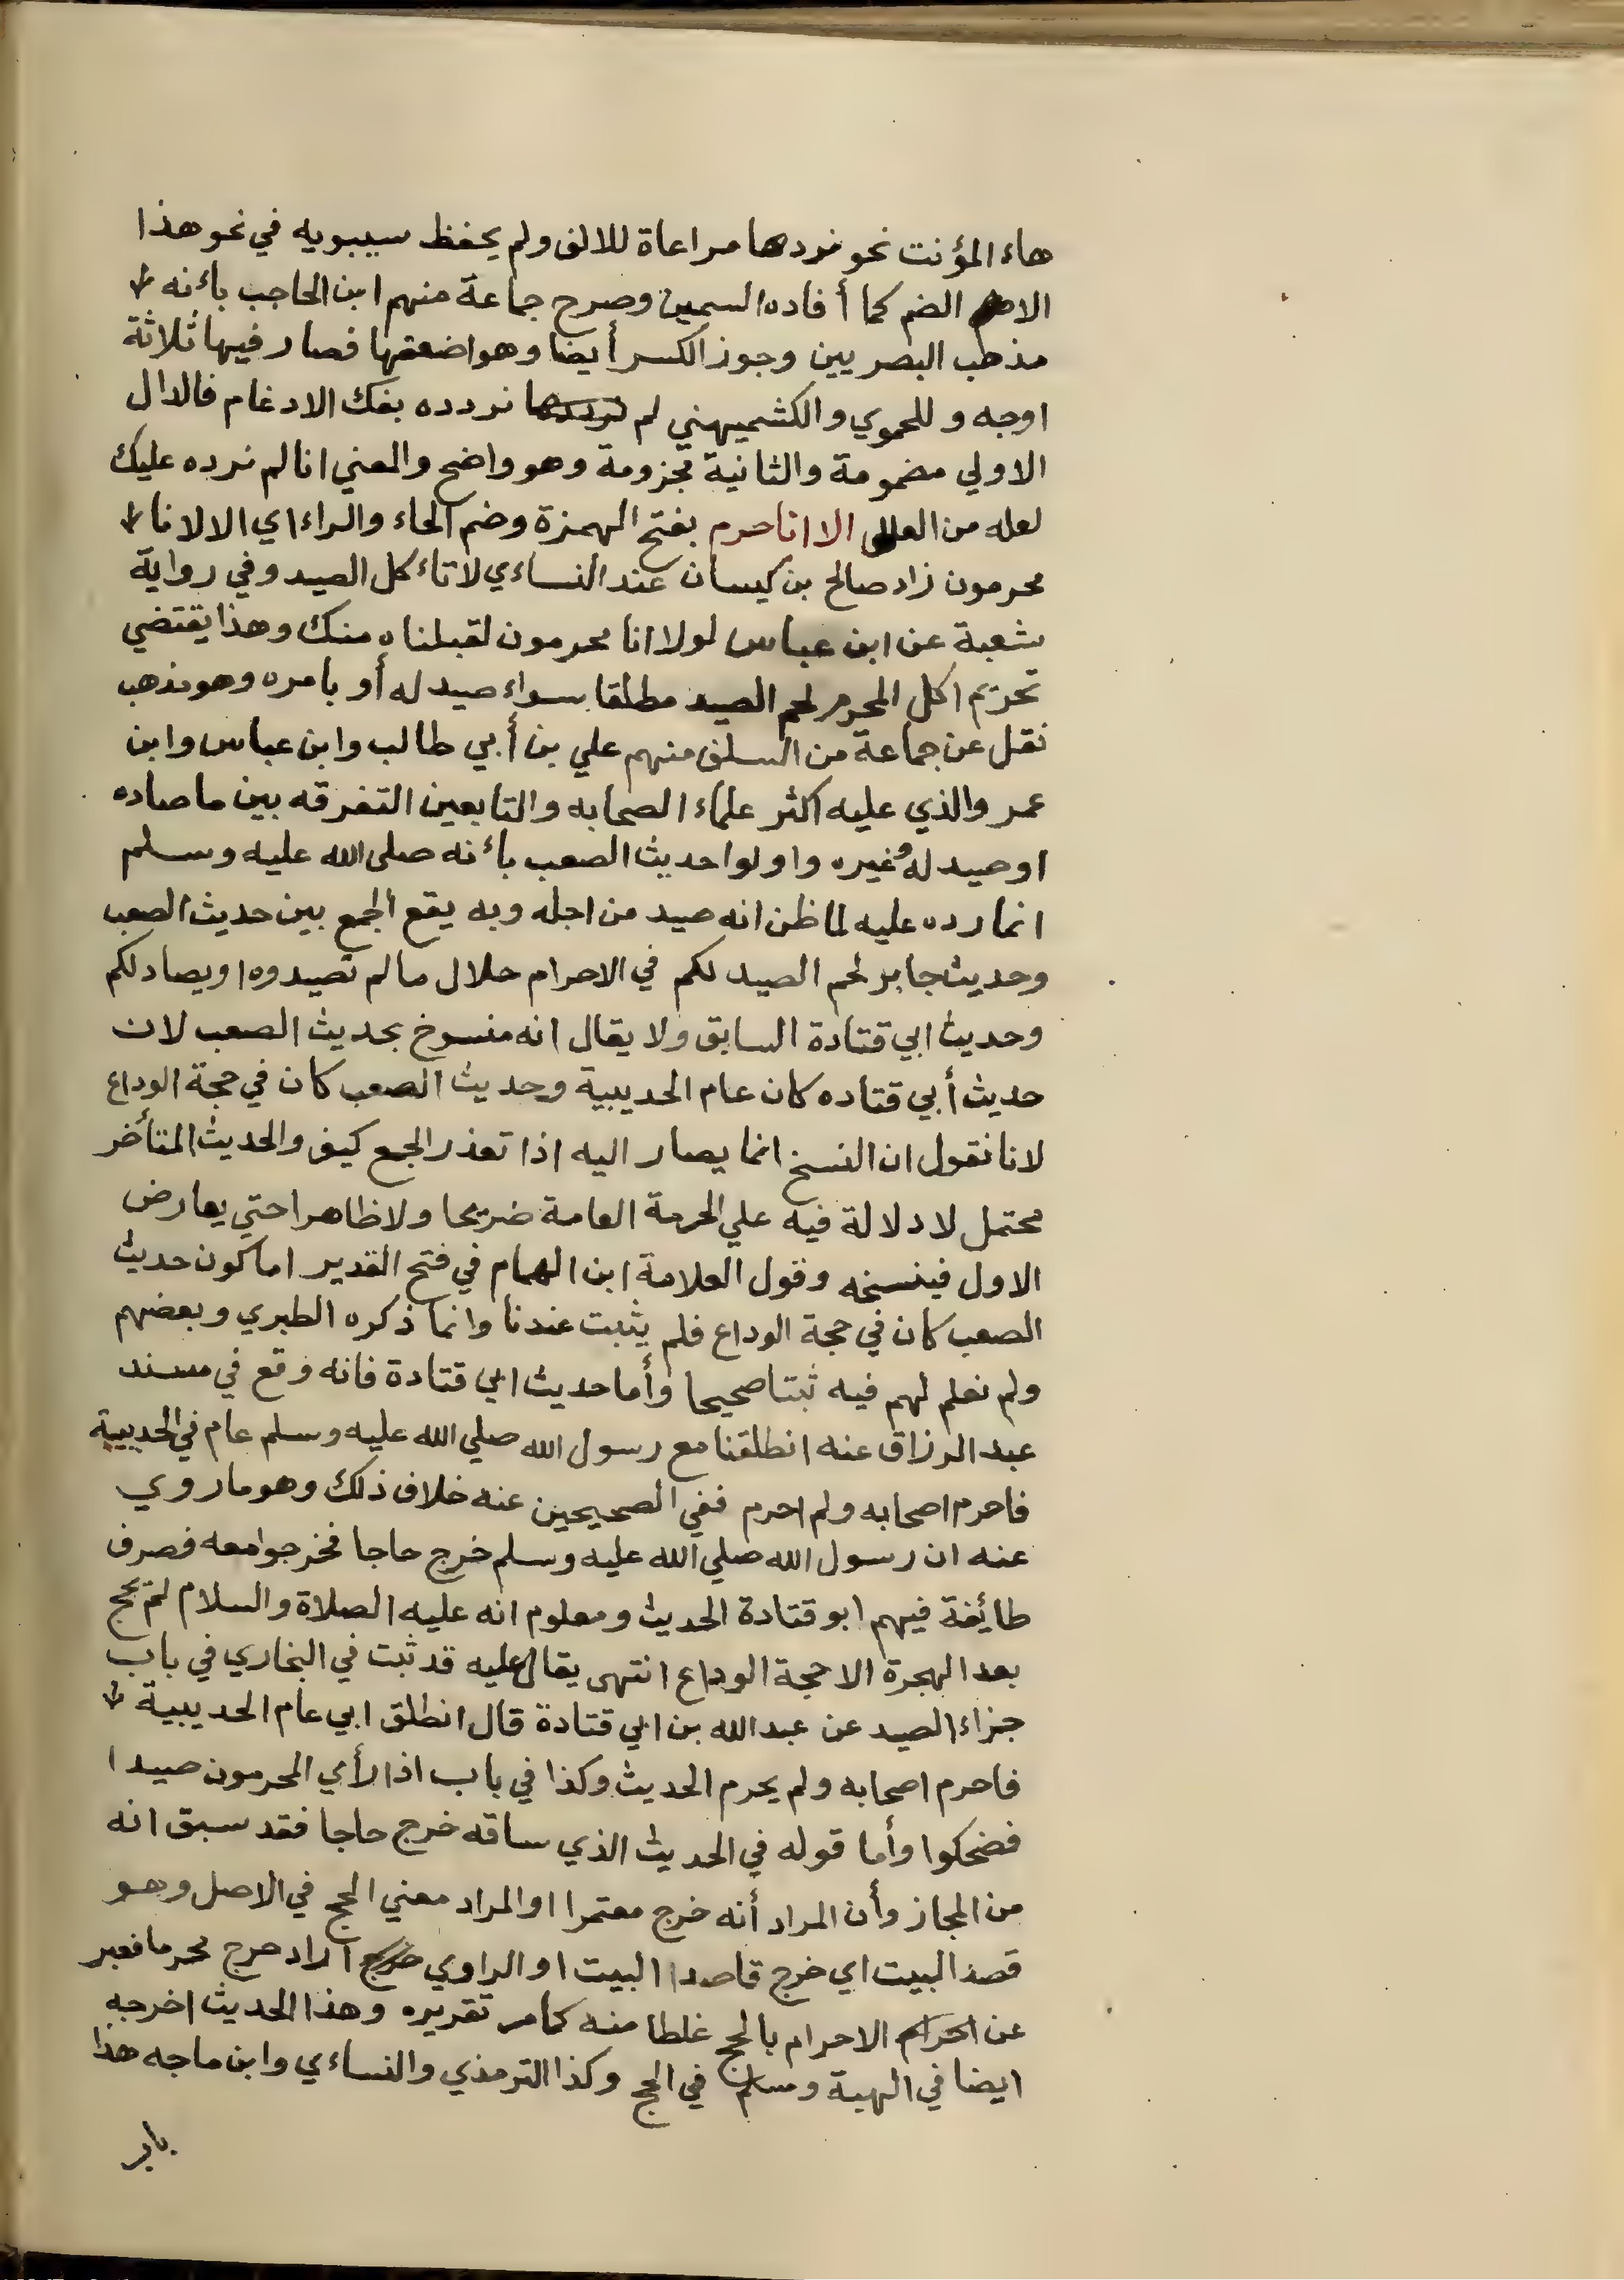 هاء المؤنت نحو نردها مراعاة للالف ولم يحفظ سيبويه في نحو هذا
الا الضم كما أفاده السمين وصرح جماعة منهم ابن الحاجب بأنه
مذهب البصريين وجوز الكسر أيضا وهو اضعفها فصار فيها ثلاثة
اوجه وللحموي والكشميهني لم نردده بفك الادغام فالدال
الاولي مضمومة والثانية مجزومة وهو واضح والمعني انا لم نرده عليك
لعله من العلل الا انا حرم بفتح الهمزة وضم الحاء والراء اي الا لانا
محرمون زاد صالح بن كيسان عند النساءي لا تاءكل الصيد وفي رواية
شعبة عن ابن عباس لولا انا محرمون لقبلناه منك وهذا يقتضي
تحريم اكل المحرم لحم الصيد مطلقا سواء صيد له أو بامره وهو مذهب
نقل عن جماعة من السلف منهم علي بن أبي طالب وابن عباس وابن
عمر والذي عليه اكثر علماء الصحابه والتابعين التفرقه بين ما صاده
او صيد له وغيره واولوا حديث الصعب باءنه صلى الله عليه وسلم
انما رده عليه لما ظن انه صيد من اجله وبه يقع الجمع بين حديث الصعب
وحديث جابر لحم الصيد لكم في الاحرام حلال ما لم تصيدوه او يصاد لكم
وحديث ابي قتادة السابق ولا يقال انه منسوخ بحديث الصعب لان
حديث أبي قتاده كان عام الحديبية وحديث الصعب كان في حجة الوداع
لانا نقول ان النسخ انما يصار اليه اذا تعذر الجمع كيف والحديث المتأخر
محتمل لا دلالة فيه علي الحرمة العامة ضريحا ولا ظاهرا حتي يعارض
الاول فينسخه وقول العلامة ابن الهمام في فتح القدير اما كون حديث
الصعب كان في حجة الوداع فلم يثبت عندنا وانما ذكره الطبري وبعضهم
ولم نعلم لهم فيه ثبتا صحيحا وأما حديث ابي قتادة فانه وقع في مسند
عبد الرزاق عنه انطلقنا مع رسول الله صلي الله عليه وسلم عام في الحديبية
فاحرم اصحابه ولم احرم ففي الصحيحين عنه خلاف ذلك وهو ما روي
عنه ان رسول الله صلي الله عليه وسلم خرج حاجا فخرجوا معه فصرف
طائفة فيهم ابو قتادة الحديث ومعلوم انه عليه الصلاة والسلام لم يحج
بعد الهجرة الا حجة الوداع انتهى يقال عليه قد ثبت في البخاري في باب
جزاء الصيد عن عبد الله بن ابي قتادة قال انطلق ابي عام الحديبية
فاحرم اصحابه ولم يحرم الحديث وكذا في باب اذا رأي المحرمون صيدا
فضحكوا وأما قوله في الحديث الذي ساقه خرج حاجا فقد سبق انه
من المجاز وأن المراد أنه خرج معتمرا او المراد معني الحج في الاصل وهو
قصد البيت اي خرج قاصدا البيت او الراوي اراد خرج محرما فعبر
عن الاحرام بالحج غلطا منه كما مر تقريره وهذا الحديث اخرجه
ايضا في الهبة ومسلم في الحج وكذا الترمذي والنساءي وابن ماجه هذا
باب